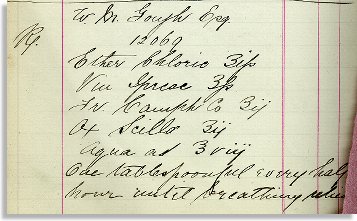 W Dr. Gough Esq
12069
Rx.
Ether Chloric ʒifs
Vin Ipecac ʒfs
Tr Camph Co ʒij
Ox Scillo ʒij
Aqua ad ʒviij
One tablespoonful every half
hour until breathing